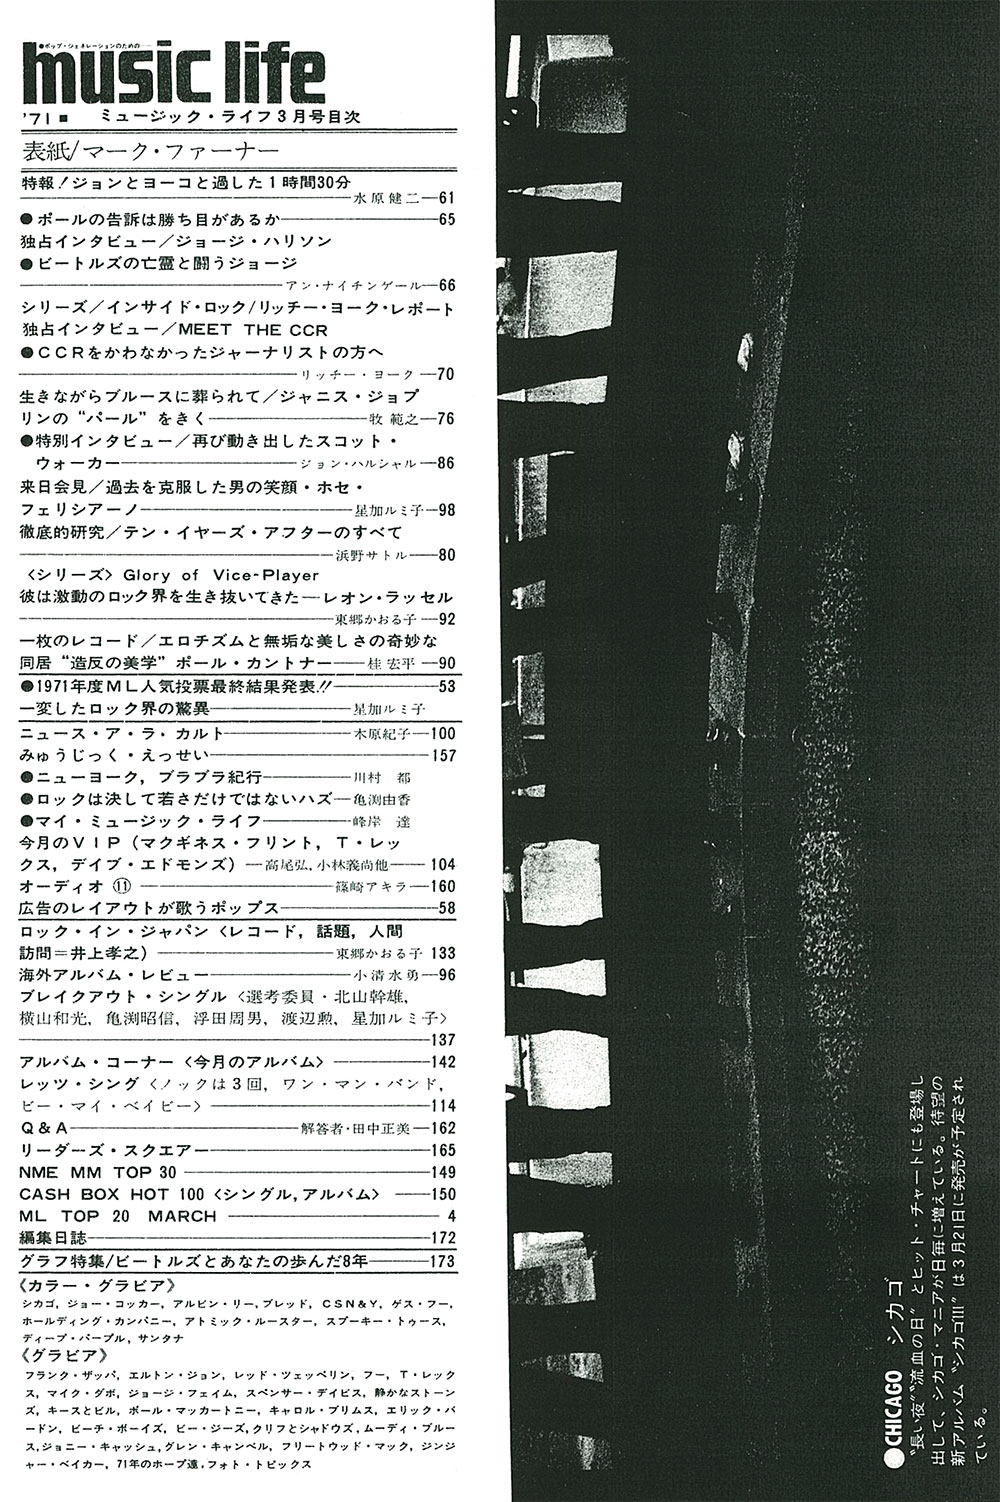 ●ポップ・ジェネレーションのための
music life
'71■ ミュージック・ライフ3月号目次
表紙/マーク・ファーナー
特報!ジョンとヨーコと過した1時間30分
水原健二—61
●ポールの告訴は勝ち目があるか—65
独占インタビュー/ジョージ・ハリソン
●ビートルズの亡霊と闘うジョージ
アン・ナイチンゲール—66
シリーズ/インサイド・ロック/リッチー・ヨーク・レポート
独占インタビュー/MEET THE CCR
●CCRをかわなかったジャーナリストの方へ
リッチー・ヨーク—70
生きながらブルースに葬られて/ジャニス・ジョプ
リンの“パール”をきく—牧 範之—76
●特別インタビュー/再び動き出したスコット・
ウォーカー—ジョン・ハルシャル—86
来日会見/過去を克服した男の笑顔・ホセ・
フェリシアーノ—星加ルミ子—98
徹底的研究/テン・イヤーズ・アフターのすべて
浜野サトル—80
〈シリーズ〉Glory of Vice-Player
彼は激動のロック界を生き抜いてきた—レオン・ラッセル
東郷かおる子—92
一枚のレコード/エロチズムと無垢な美しさの奇妙な
同居“造反の美学”ポール・カントナー—桂 宏平—90
●1971年度ML人気投票最終結果発表!!—53
一変したロック界の驚異—星加ルミ子
ニュース・ア・ラ・カルト—木原紀子—100
みゅうじっく・えっせい—157
●ニューヨーク,ブラブラ紀行—川村 都
●ロックは決して若さだけではないハズ—亀渕由香
●マイ・ミュージック・ライフ—峰岸 達
今月のVIP(マクギネス・フリント,T・レッ
クス,デイブ・エドモンズ)—高尾弘,小林義尚他—104
オーディオ ⑪—篠崎アキラ—160
広告のレイアウトが歌うポップス—58
ロック・イン・ジャパン〈レコード,話題,人間
訪問=井上孝之)—東郷かおる子 133
海外アルバム・レビュー—小清水勇—96
ブレイクアウト・シングル〈選考委員・北山幹雄,
横山和光,亀渕昭信,浮田周男,渡辺勲,星加ルミ子〉
—137
アルバム・コーナー〈今月のアルバム〉—142
レッツ・シング〈ノックは3回,ワン・マン・バンド,
ビー・マイ・ベイビー〉—114
Q&A—解答者・田中正美—162
リーダーズ・スクエアー—165
NME MM TOP 30—149
CASH BOX HOT 100〈シングル,アルバム〉—150
ML TOP 20 MARCH—4
編集日誌—172
グラフ特集/ビートルズとあなたの歩んだ8年—173
《カラー・グラビア》
シカゴ,ジョー・コッカー,アルビン・リー,ブレッド,CSN&Y,ゲス・フー,
ホールディング・カンパニー,アトミック・ルースター,スプーキー・トゥース,
ディープ・パープル,サンタナ
《グラビア》
フランク・ザッパ,エルトン・ジョン,レッド・ツェッペリン,フー,T・レック
ス,マイク・ダボ,ジョージ・フェイム,スペンサー・デイビス,静かなストーン
ズ,キースとビル,ポール・マッカートニー,キャロル・プリムス,エリック・バ
ードン,ビーチ・ボーイズ,ビー・ジーズ,クリフとシャドウズ,ムーディ・ブルー
ス,ジョニー・キャッシュ,グレン・キャンベル,フリートウッド・マック,ジンジ
ャー・ベイカー,71年のホープ達,フォト・トピックス
●CHICAGO シカゴ
“長い夜”“流血の日”とヒット・チャートにも登場し
出して、シカゴ・マニアが日毎に増えている。待望の
新アルバム“シカゴIII”は3月21日に発売が予定され
ている。